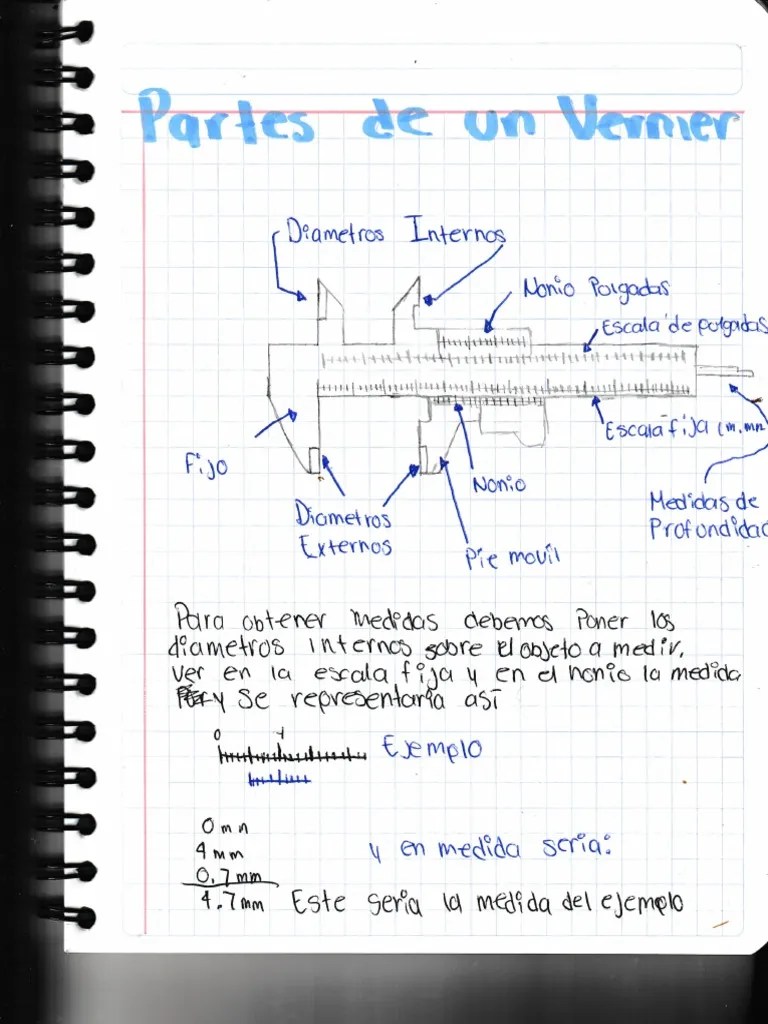 Partes de un Vernier
Diametros Internos
Nonio Polgadas
Escala de polgadas
Escala fija (m.mn
Fijo
Nonio
Diametros
Externos
Pie movil
Medidas de
Profondidad
Para obtener medidas debemos Poner los
diametros internos sobre el objeto a medir,
ver en la escala fija y en el nonio la medida
y se representaria así
0
Ejemplo
0mn
4mm
y en medida seria:
0.7mm
4.7mm Este seria la medida del ejemplo